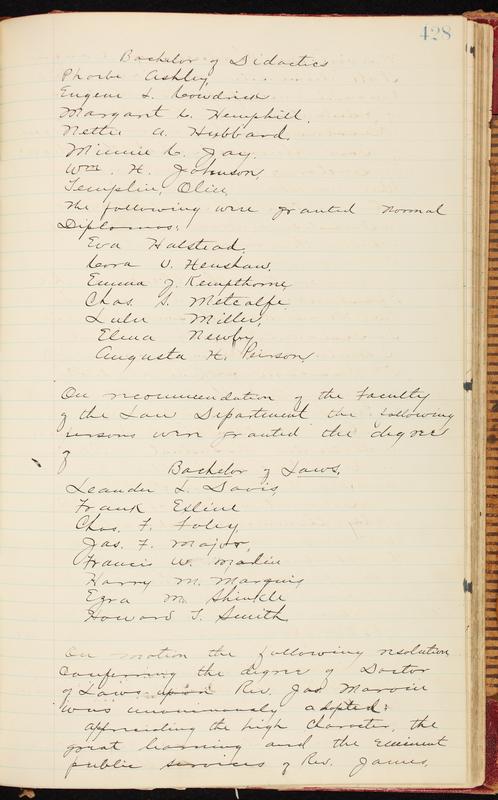 428
Bachelor of Didactics
Phoebe Ashley,
Eugene L. Cowdrick
Margaret L. Hemphill.
Nettie A. Hubbard.
Minnie L. Jay.
Wm. H. Johnson,
Templin, Olin,
The following were granted Normal
Diplomas:
Eva Halstead,
Cora V. Henshaw,
Emma J. Kempthorne
Chas. S. Metcalfe
Lulu Miller,
Elma Newby
Augusta H. Pierson
On recommendation of the Faculty
of the Law Department the following
persons were granted the degree
of
Bachelor of Laws.
Leander L. Davis
Frank Esline
Chas. F. Foley
Jas. F. Major,
Francis W. Madin
Harry M. Marquis
Ezra M. Shinkle
Howard T. Smith
On motion the following resolution
Conferring the degree of Doctor
of Laws upon Rev. Jas Marvin
was unanimously adopted:
Appreciating the high Character, the
great learning and the Eminent
public services of Rev. James,